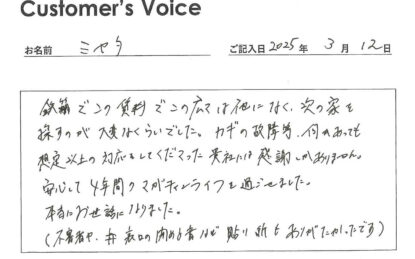 Customer's Voice
お名前 ミヤタ ご記入日 2025年 3月 12日
鉄筋でこの賃料でこの広さは他になく、次の家を
探すのが大変なくらいでした。カギの故障等、何があっても
想定以上の対応をしてくださった貴社には感謝しかありません。
安心して4年間クマガヤライフを過ごせました。
本当にお世話になりました。
(不審者や、表口の閉める音など貼り紙もありがたかったです)